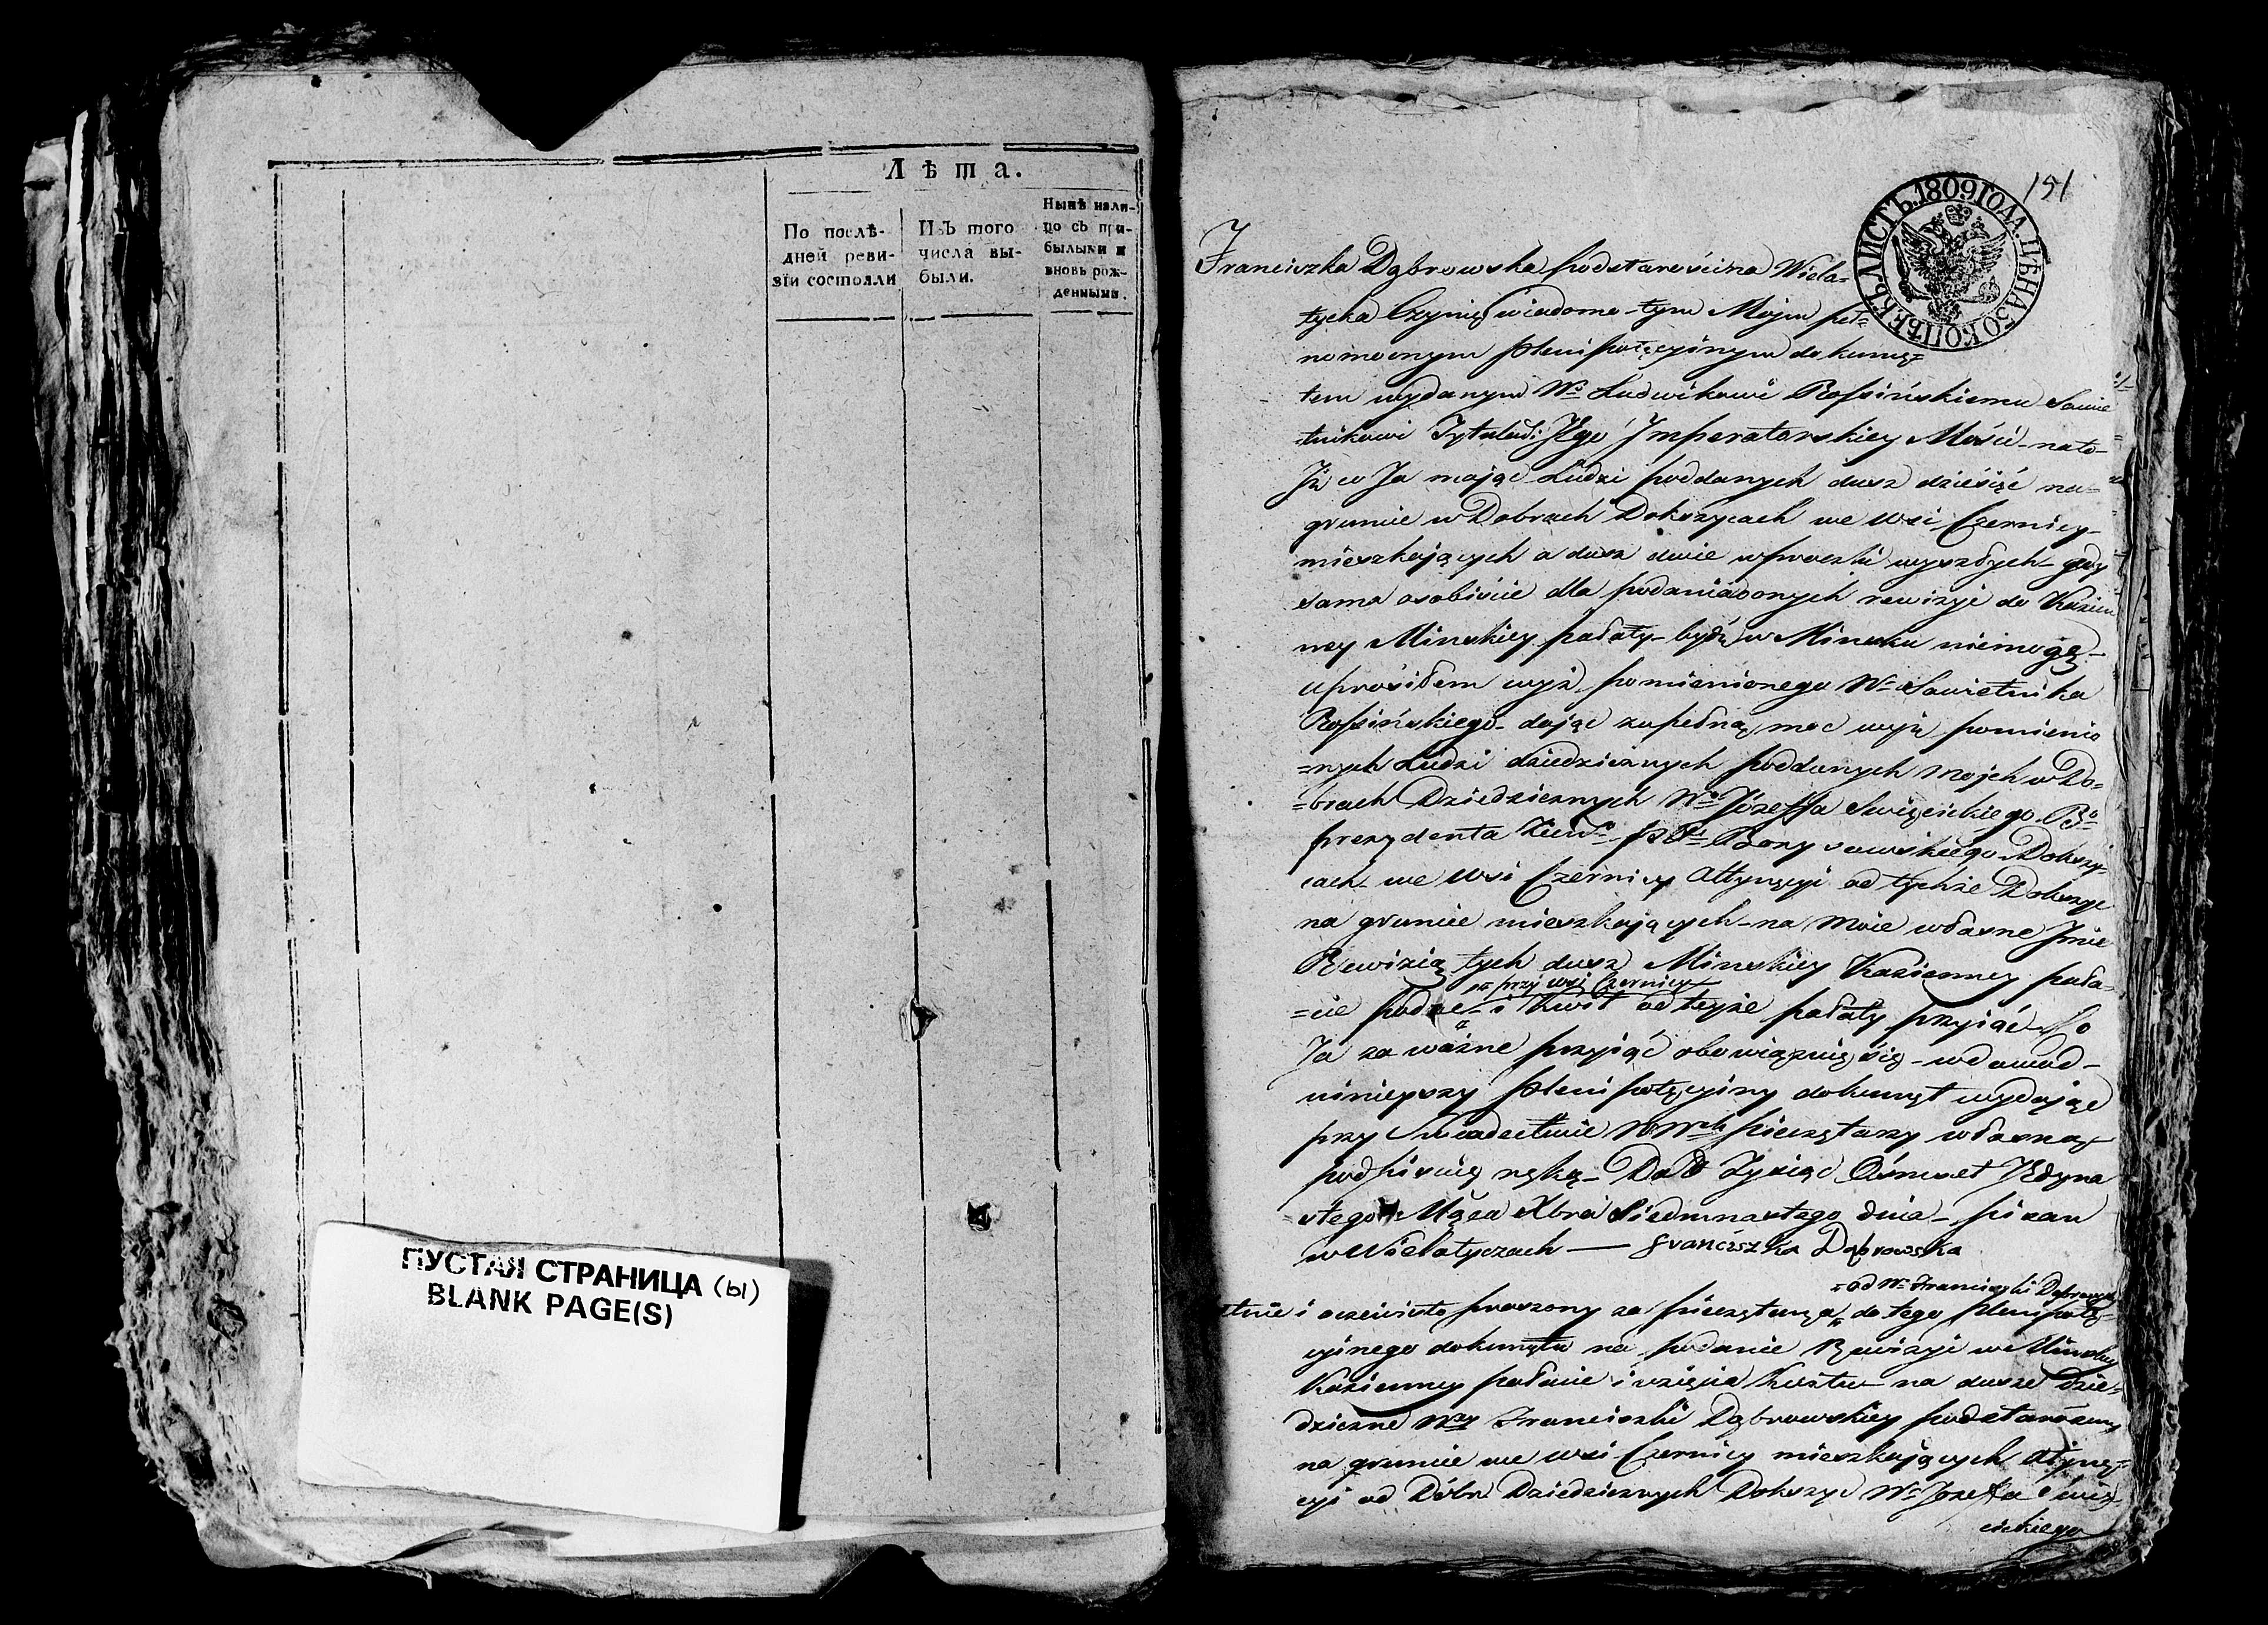 Лѣта.
По послѣ-
дней реви-
зіи состояли
Изъ того
числа вы-
были.
Нынѣ нали-
цо съ при-
былыми и
вновь рож-
денными.
ПУСТАЯ СТРАНИЦА (ы)
BLANK PAGE(S)
151
ЛИСТЪ. 1809 ГОДА. ЦѢНА 50 КОПѢЕКЪ.
Franciszka Dąbrowska podstarościna Wiela-
tycka Czynię wiadomo tym Moim peł=
nomocnym plenipotęcyinym dokumę=
tem wydanym Wu Ludwikowi Rossińskiemu Sowie
tnikowi Tytular: Jego Imperatorskiey Mości - na to -
Iż co Ja mając Ludzi poddanych dusz dziesięć na=
gruncie w Dobrach Dokszycach we wsi Czernicy -
mieszkających a dusz dwie w proszki wyszłych - gdy
sama osobiście dla podania onych rewizyi do Kazien
ney Minskiey pałaty - bydź w Minsku niemogę -
uprosiłem wyż pomienionego Wo Sowietnika
Rossińskiego - dając zupełną moc wyż pomienio
=nych Ludzi dziedzicznych poddanych mojch w Do=
=brach Dziedzicznych Wo Józeffa Swięcickiego B:
prezydenta Ziem: ptu Borysowskiego Dokszy-
cach - we wsi Czernicy Attynęcyi od tychże Dokszyc
na gruncie mieszkających - na moie własne Imie
Rewizią tych dusz Minskiey Kazienney pała-
= przy wsi Czernicy
=cie podać - i kwit od teyże pałaty przyiąć - Co
Ja za ważne przyiąć obowiązuię się - w dowod -
ninieyszy plenipotęcyiny dokumęt wydając
przy Swiadectwie WWch pieczętarzy własną
podpisuię ręką - Dat Tysiąc Osmset Jedyna
stego Mąca Xbra Siedmnastego dnia - pisan
w Wielatyczach — Franciszka Dąbrowska
= od Wey Franciszki Dąbrowskiey
Ustnie i oczewisto proszony za pieczętarza do tego plenipotę-
cyinego dokumętu na podanie Rewizyi we Minskiey
Kazienney pałacie i wzięcia kwitu na dusze Dzie=
dziczne Wey Franciszki Dąbrowskiey podstarościny
na gruncie we wsi Czernicy mieszkających Atynę=
cyi od Dóbr Dziedzicznych Dokszyc Wo Jozeffa Swię
cickiego